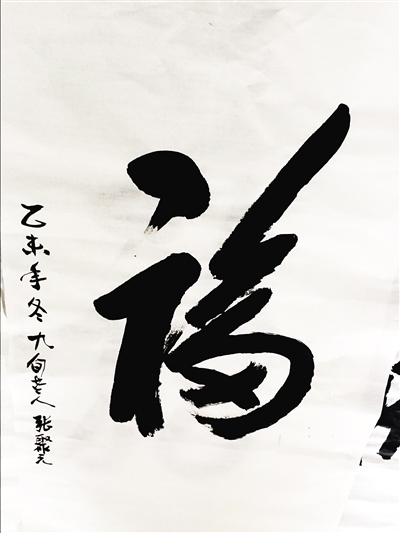 福
乙未年冬九旬老人张聚元